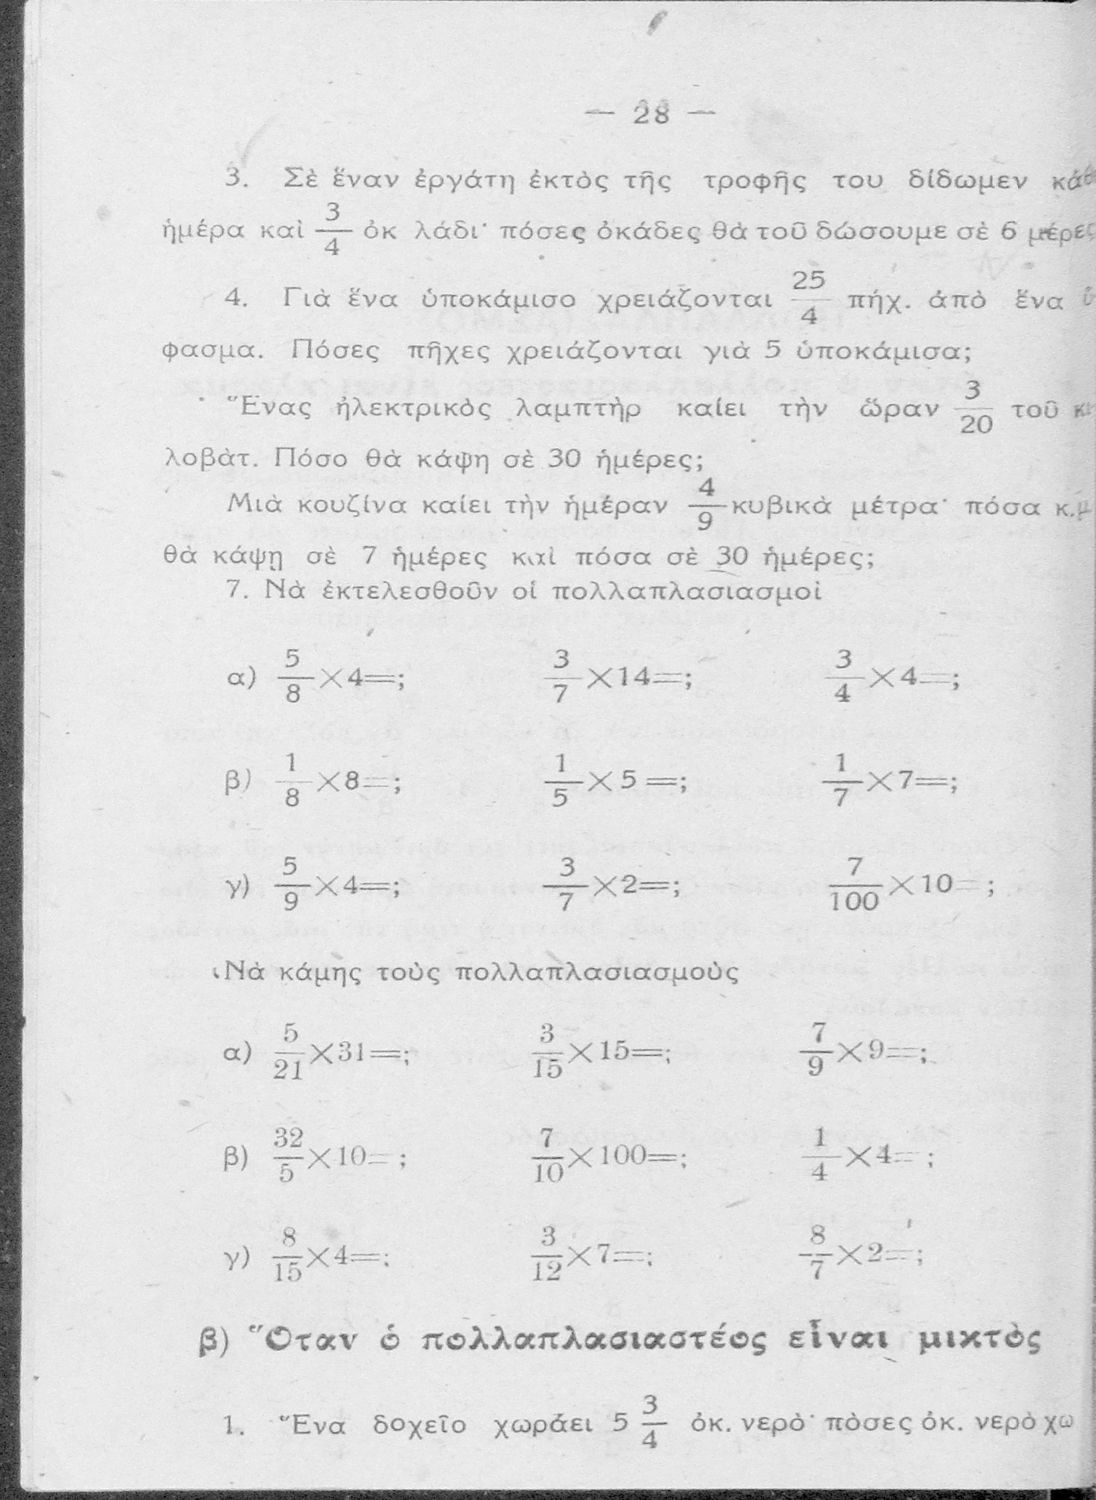 — 28 —
3. Σὲ ἕναν ἐργάτη ἐκτὸς τῆς τροφῆς του δίδωμεν κάθ
ἡμέρα καὶ 3/4 ὀκ λάδι· πόσες ὀκάδες θὰ τοῦ δώσουμε σὲ 6 μέρες
4. Γιὰ ἕνα ὑποκάμισο χρειάζονται 25/4 πήχ. ἀπὸ ἕνα ὕ
φασμα. Πόσες πῆχες χρειάζονται γιὰ 5 ὑποκάμισα;
Ἕνας ἠλεκτρικὸς λαμπτὴρ καίει τὴν ὥραν 3/20 τοῦ κι
λοβὰτ. Πόσο θὰ κάψη σὲ 30 ἡμέρες;
Μιὰ κουζίνα καίει τὴν ἡμέραν 4/9 κυβικὰ μέτρα· πόσα κ.μ
θὰ κάψῃ σὲ 7 ἡμέρες καὶ πόσα σὲ 30 ἡμέρες;
7. Νὰ ἐκτελεσθοῦν οἱ πολλαπλασιασμοὶ
α) 5/8×4=; 3/7×14=; 3/4×4=;
β) 1/8×8=; 1/5×5=; 1/7×7=;
γ) 5/9×4=; 3/7×2=; 7/100×10=;
Νὰ κάμης τοὺς πολλαπλασιασμοὺς
α) 5/21×31=; 3/15×15=; 7/9×9=;
β) 32/5×10=; 7/10×100=; 1/4×4=;
γ) 8/15×4=; 3/12×7=; 8/7×2=;
β) Ὅταν ὁ πολλαπλασιαστέος εἶναι μικτὸς
1. Ἕνα δοχεῖο χωράει 5 3/4 ὀκ. νερὸ· πὸσες ὀκ. νερὸ χω